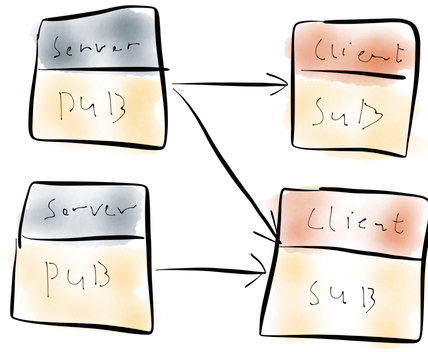 Server
PUB
Client
SUB
Server
PUB
Client
SUB